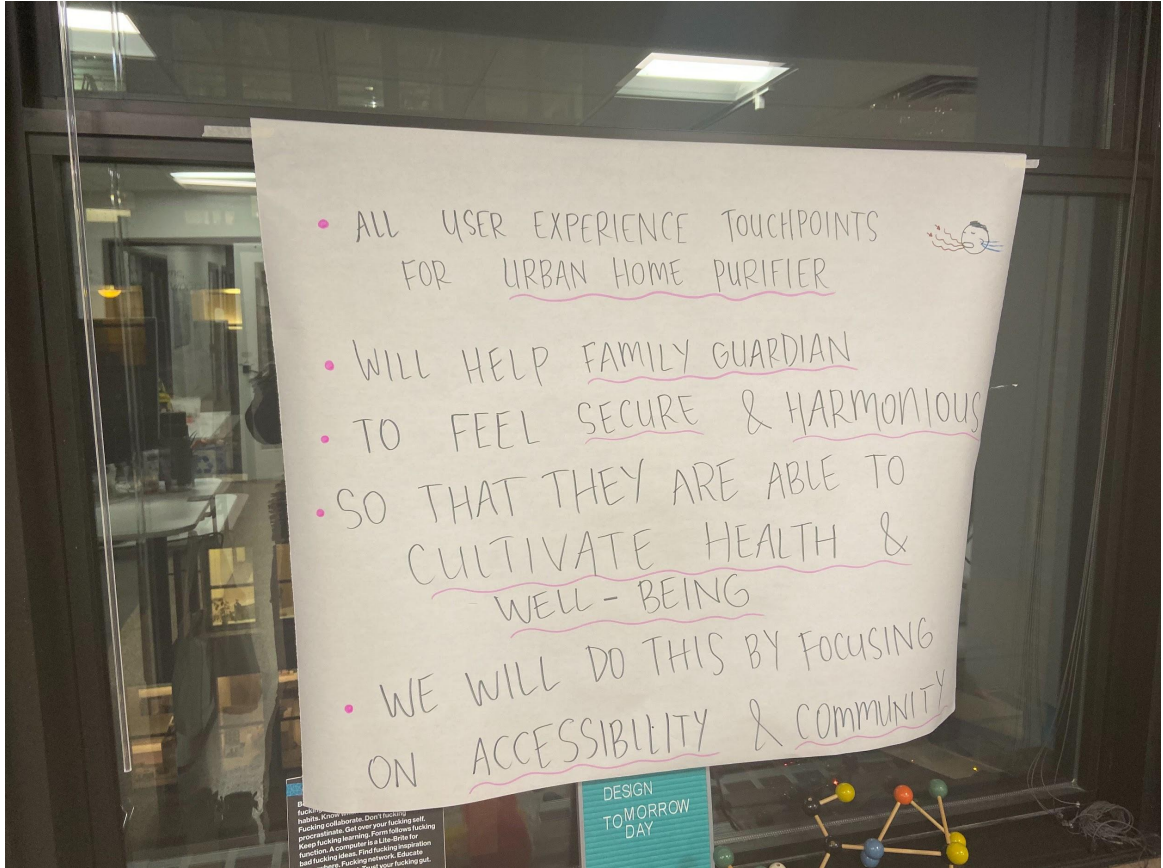 • ALL USER EXPERIENCE TOUCHPOINTS
FOR URBAN HOME PURIFIER
• WILL HELP FAMILY GUARDIAN
• TO FEEL SECURE & HARMONIOUS
• SO THAT THEY ARE ABLE TO
CULTIVATE HEALTH &
WELL-BEING
• WE WILL DO THIS BY FOCUSING
ON ACCESSIBILITY & COMMUNITY
habits. Know
Fucking collaborate. Don't fucking
procrastinate. Get over your fucking self.
Keep fucking learning. Form follows fucking
function. A computer is a Lite-Brite for
bad fucking ideas. Find fucking inspiration
Fucking network. Educate
Trust your fucking gut.
DESIGN
TOMORROW
DAY